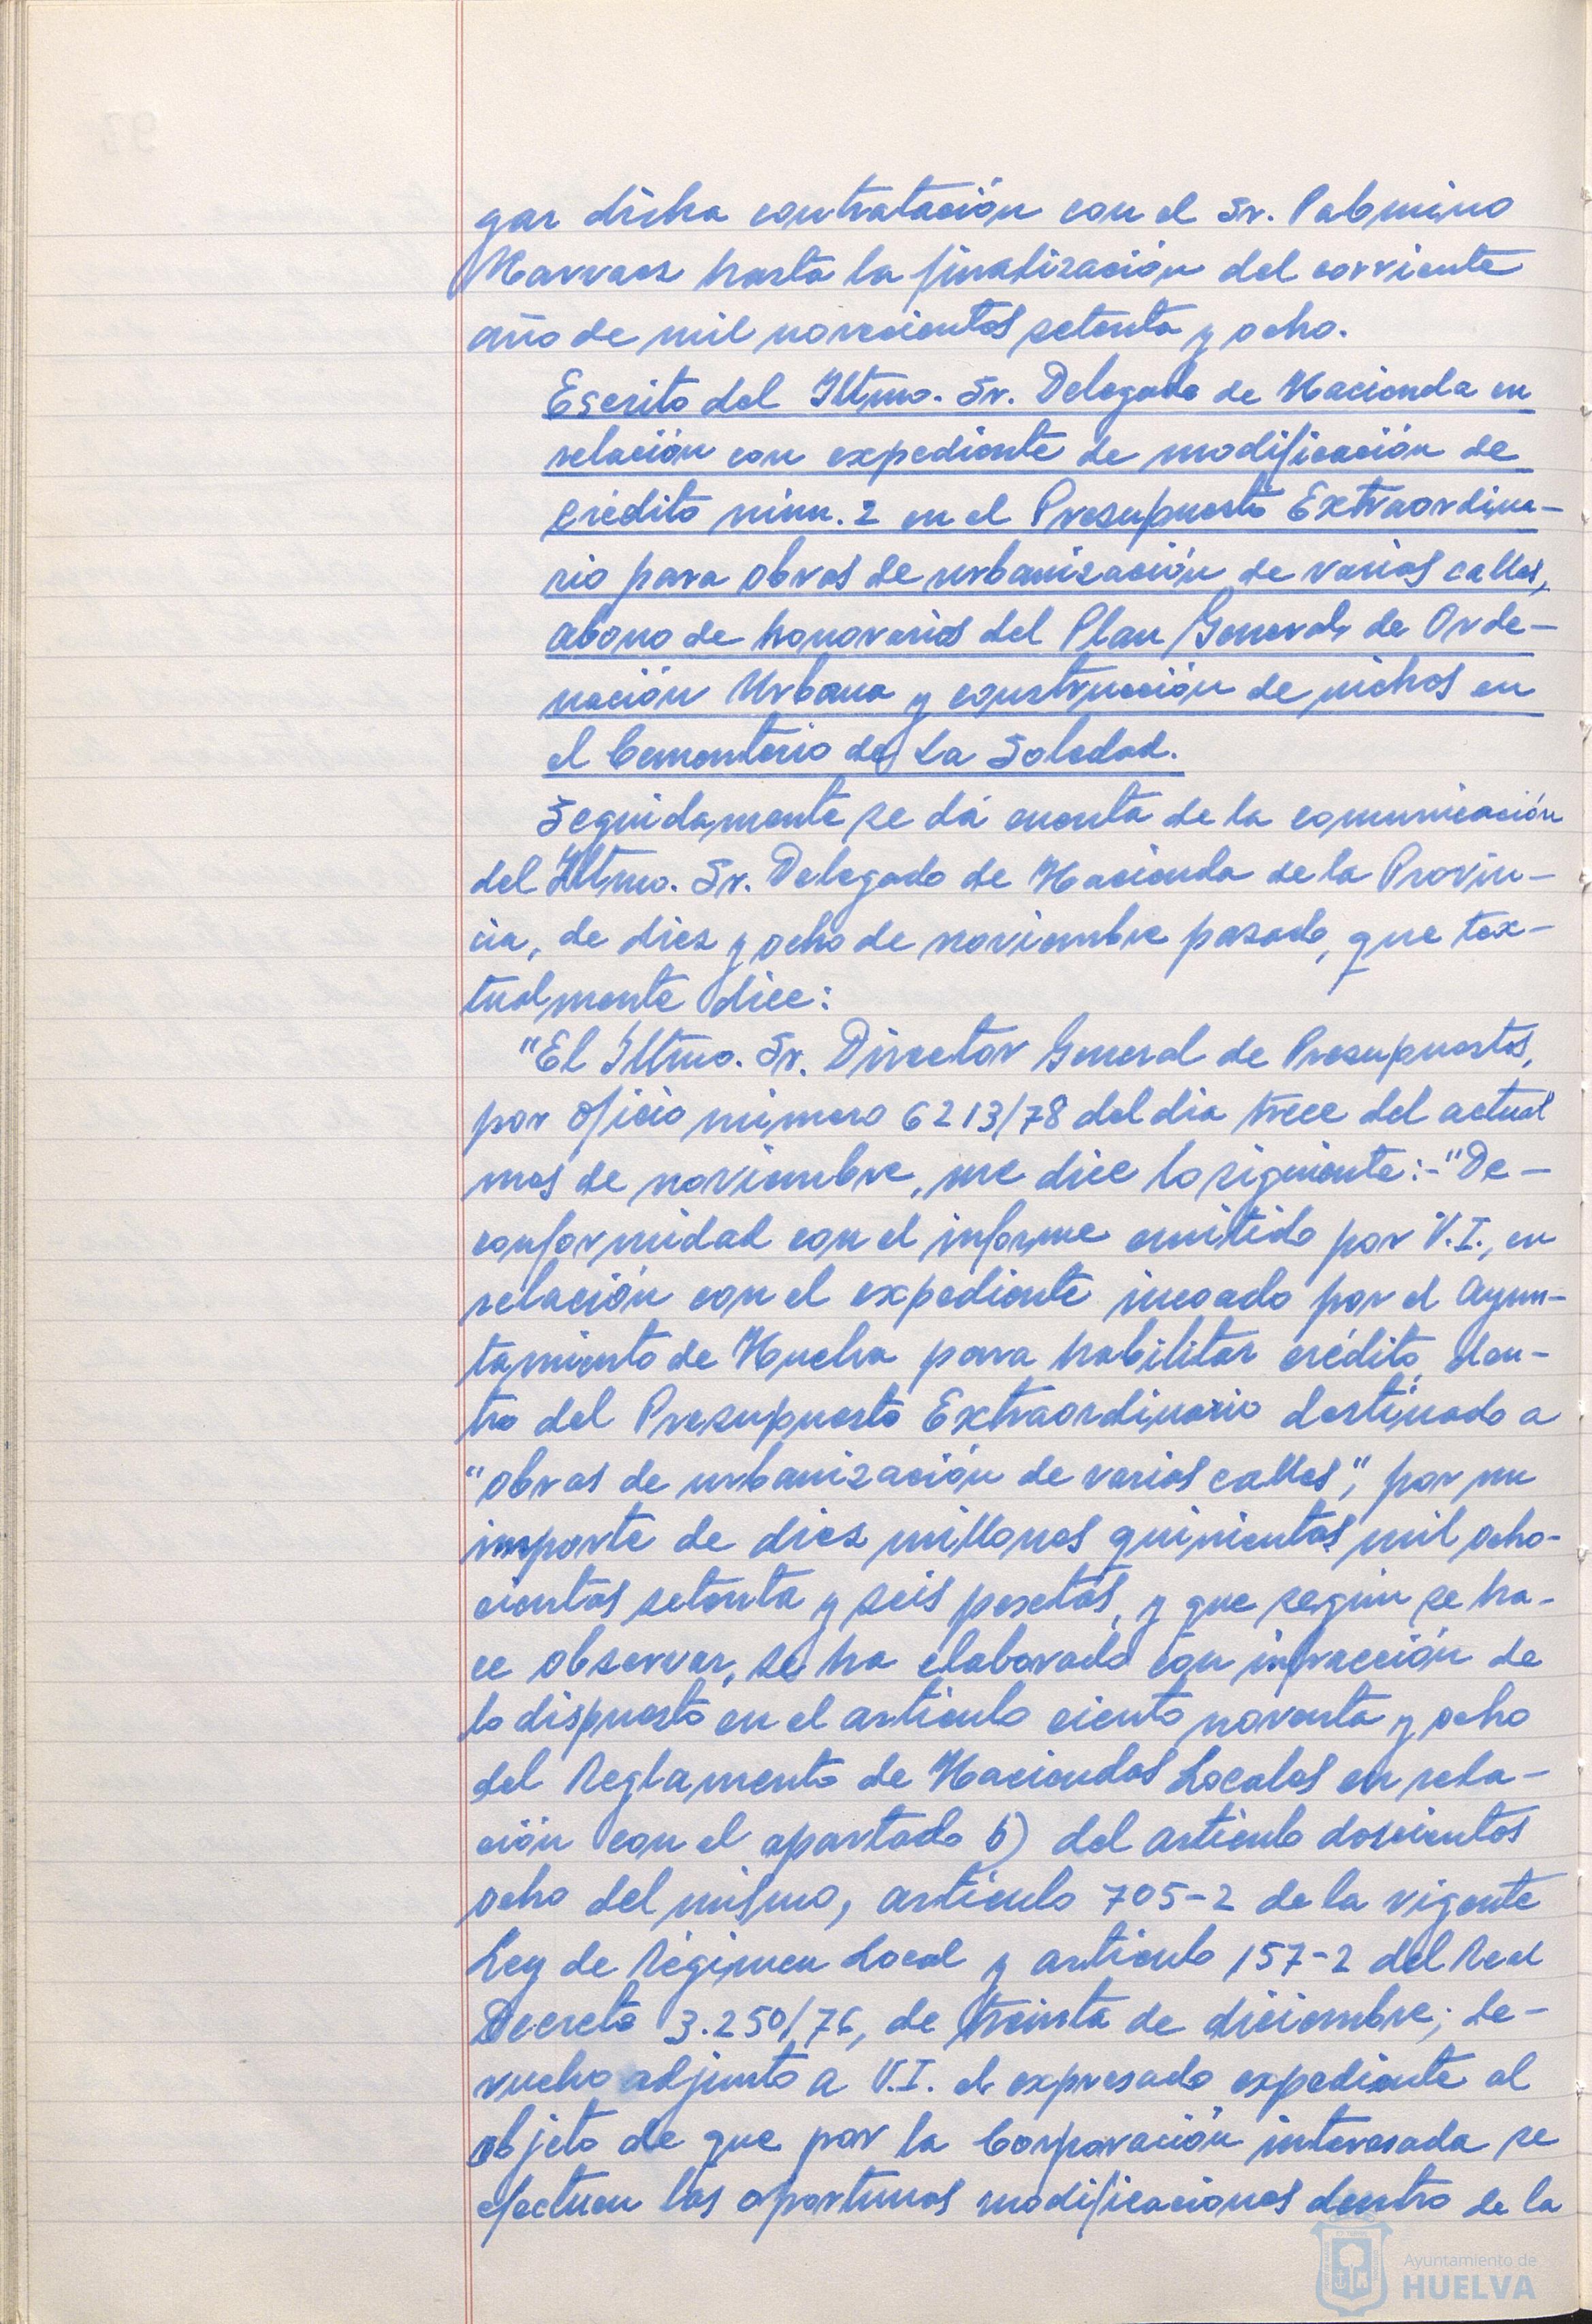 gar dicha contratación con el Sr. Palomino
Narvaez hasta la finalización del corriente
año de mil novecientos setenta y ocho.
Escrito del Iltmo. Sr. Delegado de Hacienda en
relación con expediente de modificación de
crédito núm. 2 en el Presupuesto Extraordina-
rio para obras de urbanización de varias calles,
abono de honorarios del Plan General de Orde-
nación Urbana y construcción de nichos en
el Cementerio de La Soledad.
Seguidamente se dá cuenta de la comunicación
del Iltmo. Sr. Delegado de Hacienda de la Provin-
cia, de diez y ocho de noviembre pasado, que tex-
tualmente dice:
"El Iltmo. Sr. Director General de Presupuestos,
por oficio número 6213/78 del dia trece del actual
mes de noviembre, me dice lo siguiente:-"De-
conformidad con el informe emitido por V.I., en
relación con el expediente incoado por el Ayun-
tamiento de Huelva para habilitar crédito, den-
tro del Presupuesto Extraordinario destinado a
"obras de urbanización de varias calles", por un
importe de diez millones quinientas mil ocho-
cientas setenta y seis pesetas, y que según se ha-
ce observar, se ha elaborado con infracción de
lo dispuesto en el articulo ciento noventa y ocho
del Reglamento de Haciendas Locales en rela-
ción con el apartado b) del articulo doscientos
ocho del mismo, articulo 705-2 de la vigente
Ley de Régimen Local y articulo 157-2 del Real
Decreto 3.250/76, de treinta de diciembre; de-
vuelvo adjunto a V.I. el expresado expediente al
objeto de que por la Corporación interesada se
efectuen las oportunas modificaciones dentro de la
Ayuntamiento de
HUELVA